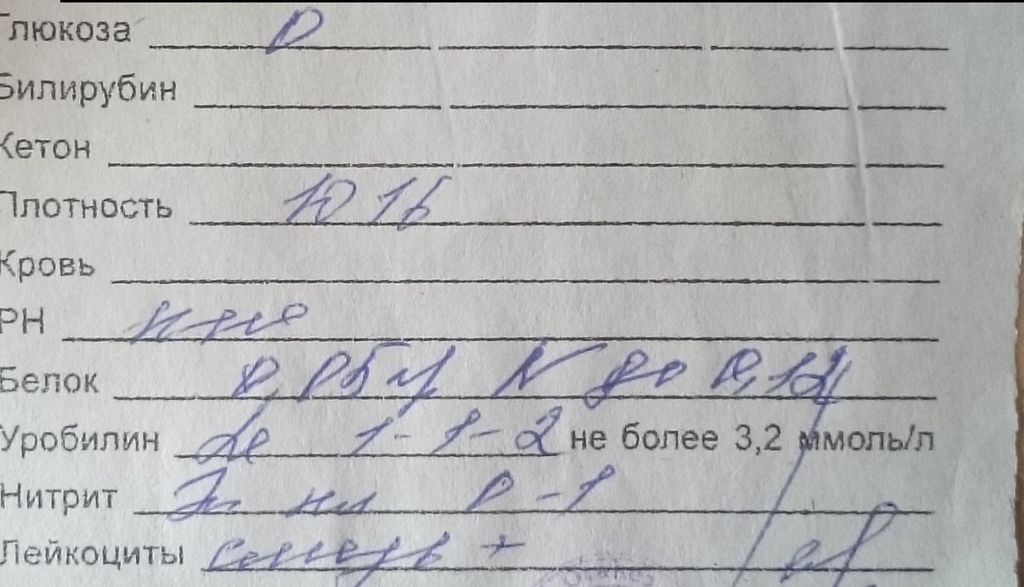 Глюкоза 0
Билирубин
Кетон
Плотность 1016
Кровь
РН
Белок 0,05 г/л N до 0,12
Уробилин Le 1-1-2 не более 3,2 ммоль/л
Нитрит Эп пл 0-1
Лейкоциты слизь +